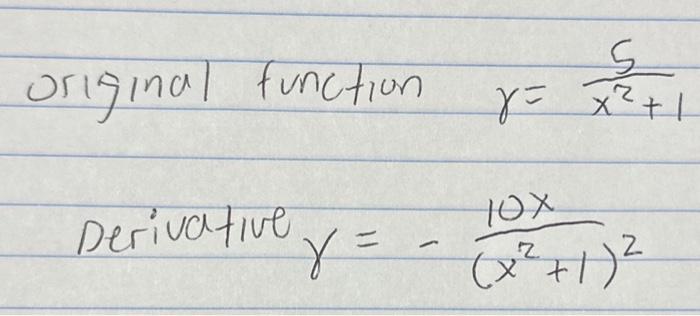 original function y = 5/(x²+1)
Derivative y = - 10x/(x²+1)²